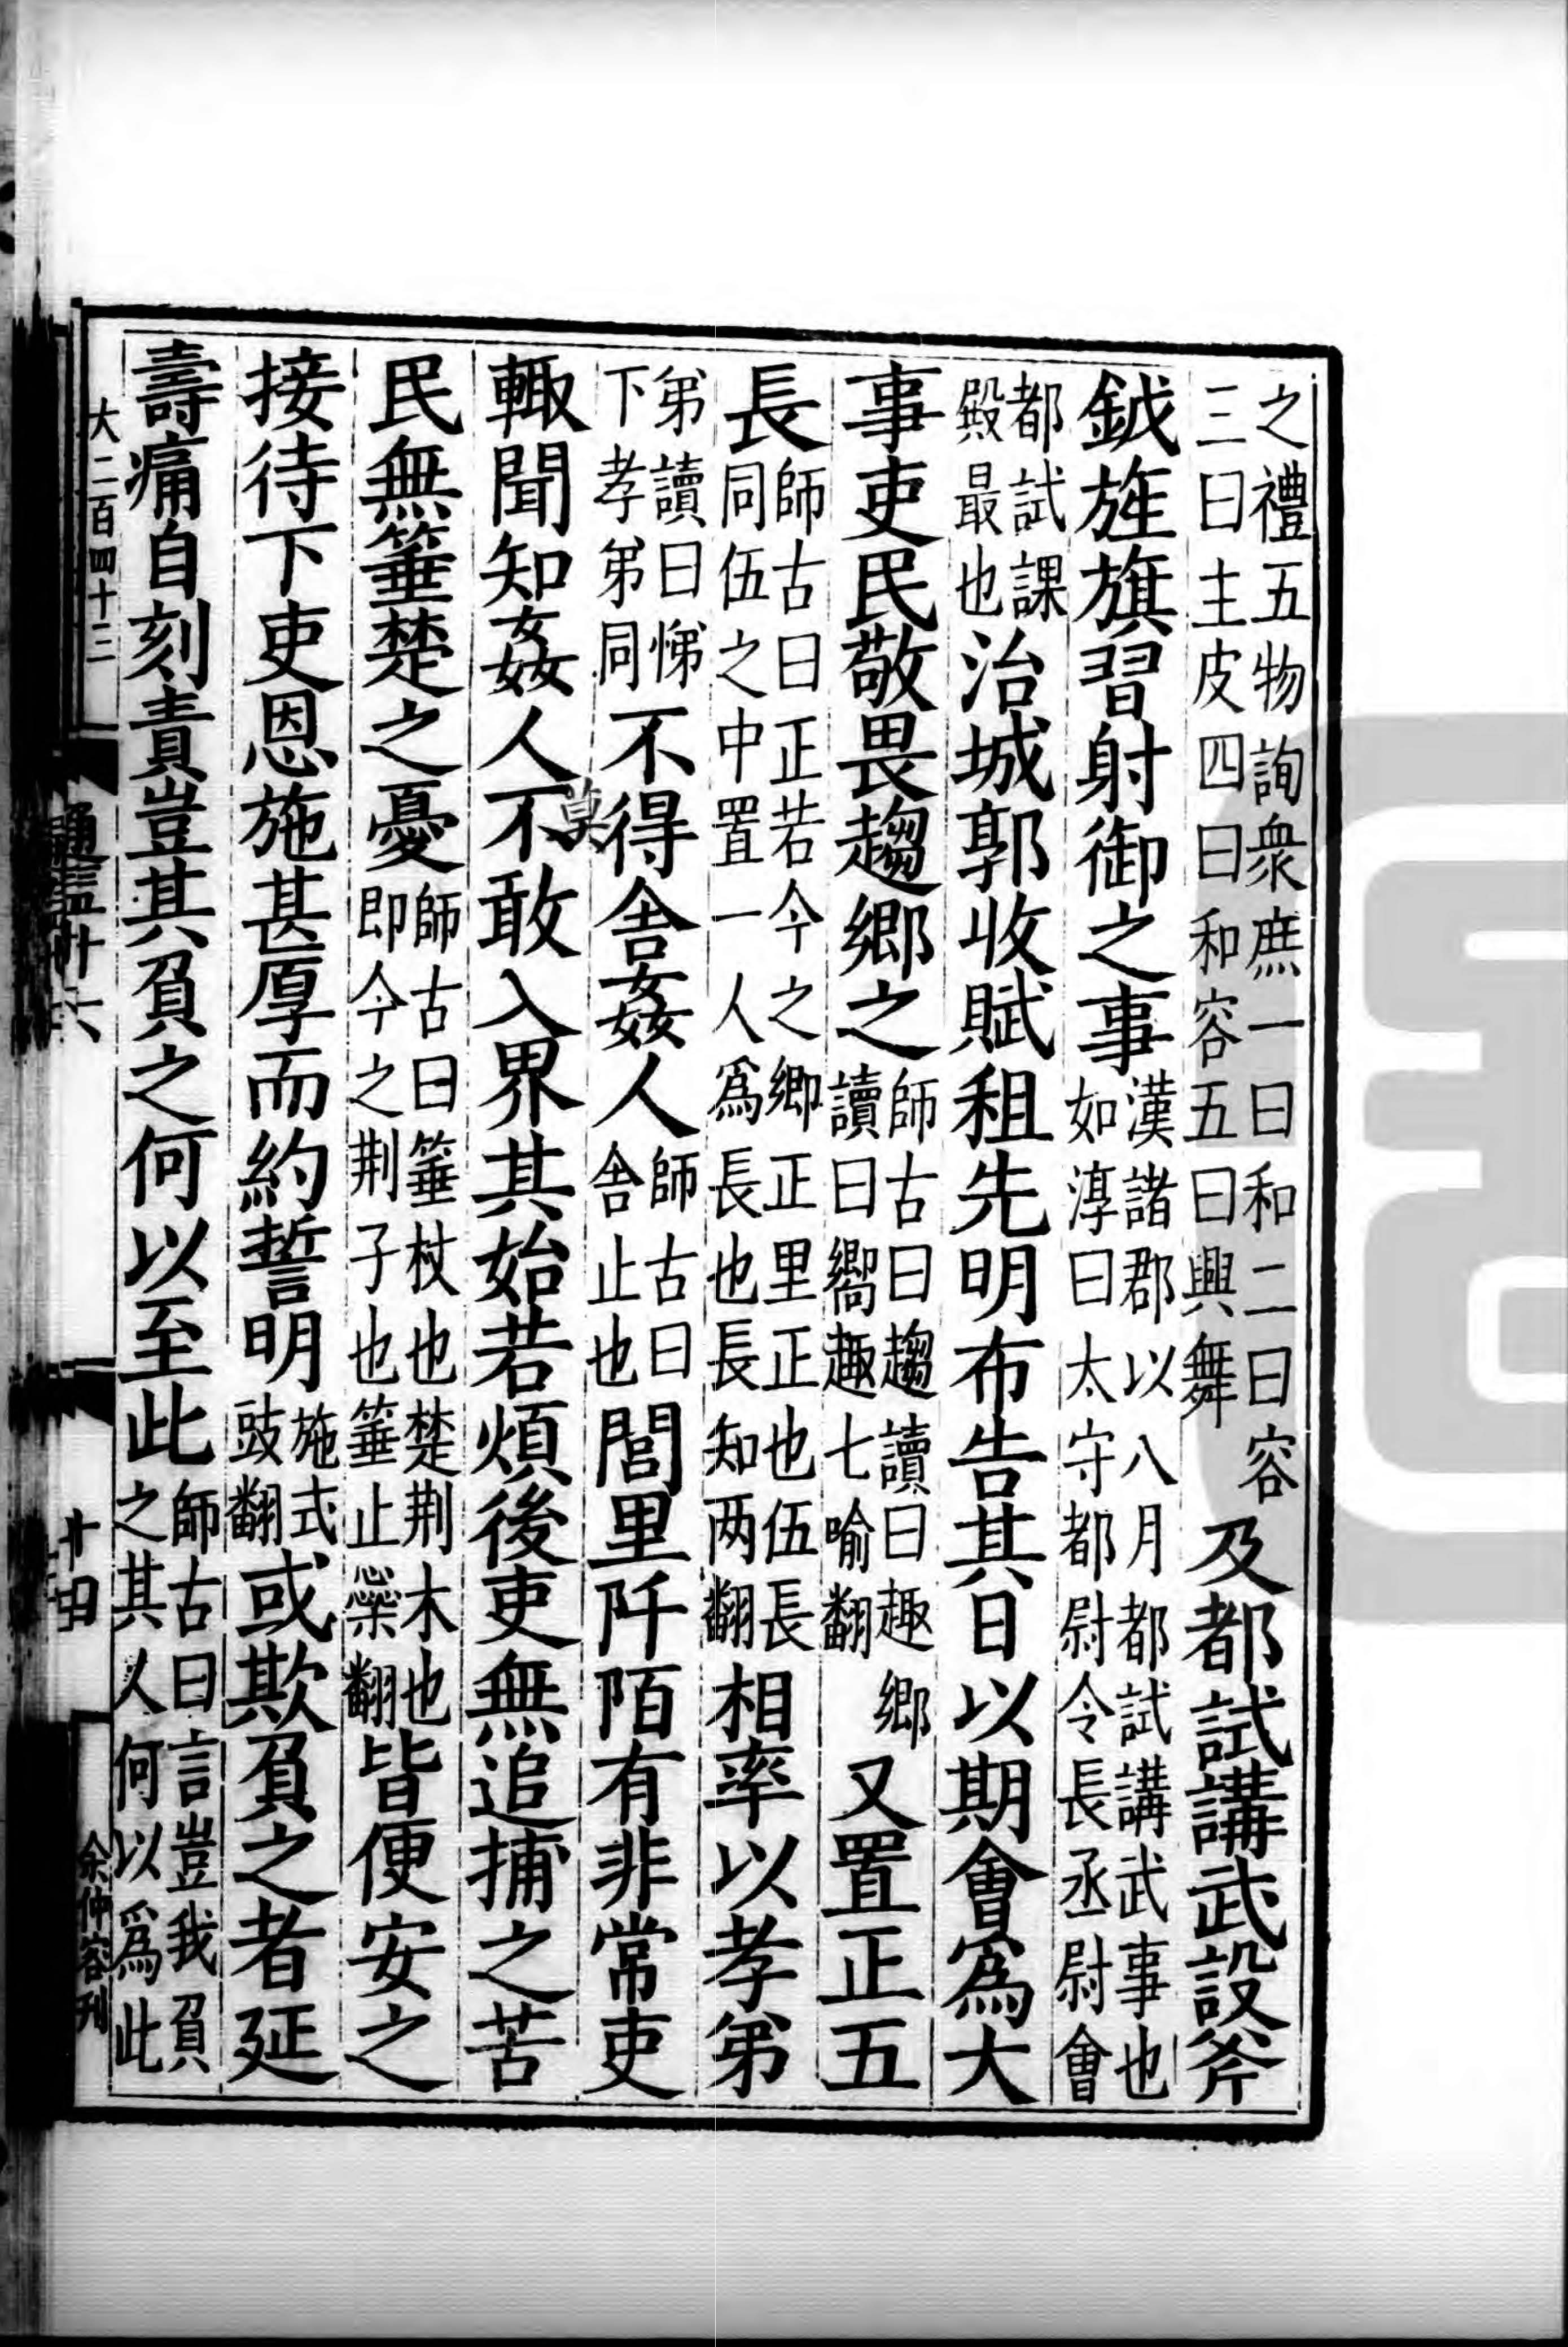 之禮五物詢衆庶一曰和二曰容
三曰主皮四曰和容五曰興舞
及都試講武設斧
鉞旌旗習射御之事
漢諸郡以八月都試講武事也
如淳曰太守都尉令長丞尉會
都試課
殿最也
治城郭收賦租先明布告其日以期會爲大
事吏民敬畏趨鄉之
師古曰趨讀曰趣鄉
讀曰嚮趣七喻翻
又置正五
長
師古曰正若今之鄉正里正也伍長
同伍之中置一人爲長也長知两翻
相率以孝弟
弟讀曰悌
下孝弟同
不得舍姦人
師古曰
舍止也
閭里阡陌有非常吏
輙聞知姦人不敢入界其始若煩後吏無追捕之苦
莫
民無箠楚之憂
師古曰箠杖也楚荆木也
即今之荆子也箠止橤翻
皆便安之
接待下吏恩施甚厚而約誓明
施式
豉翻
或欺負之者延
壽痛自刻責豈其負之何以至此
師古曰言豈我負
之其人何以爲此
大二百四十三
通鑑廿六
余仲容刋